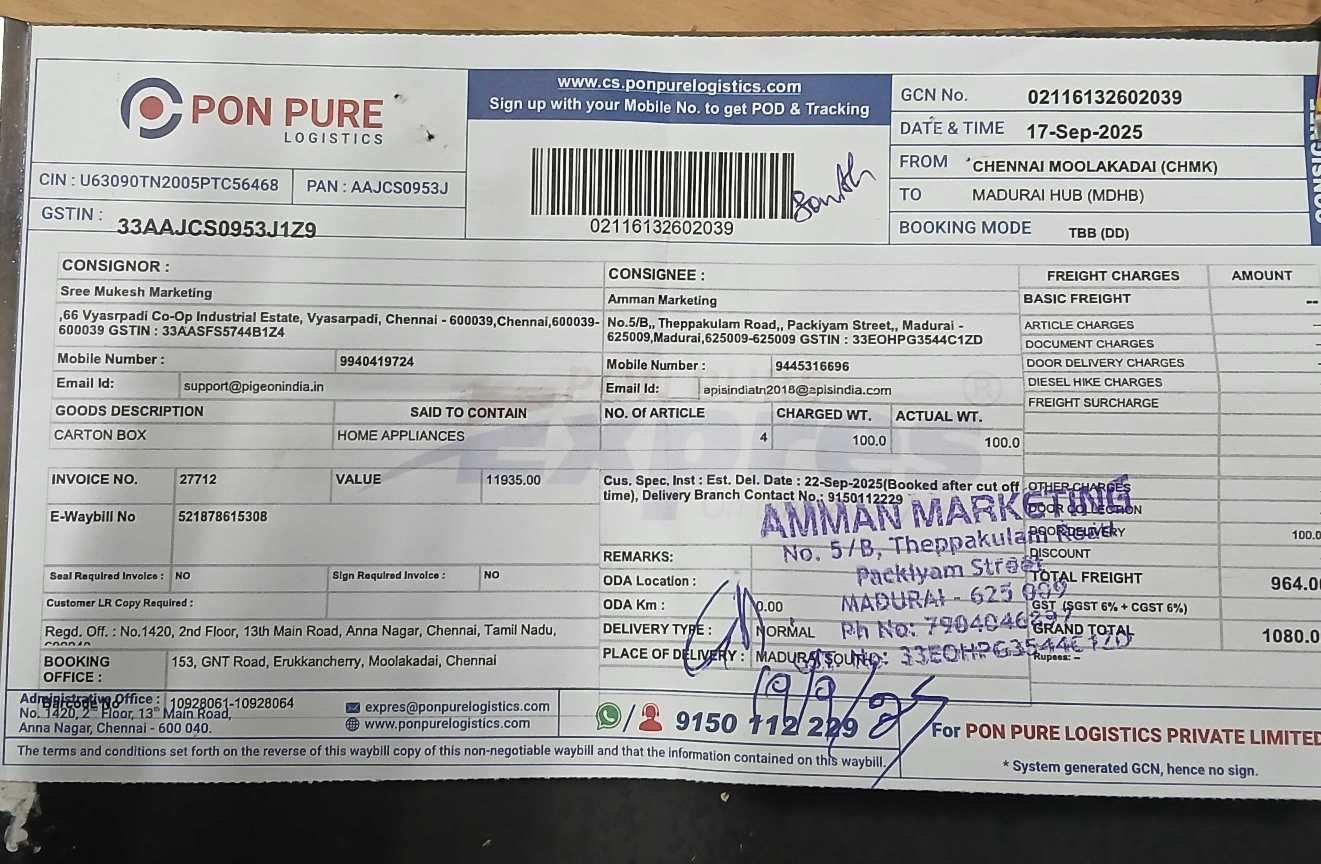 PON PURE
LOGISTICS
www.cs.ponpurelogistics.com
Sign up with your Mobile No. to get POD & Tracking
GCN No. 02116132602039
DATE & TIME 17-Sep-2025
FROM CHENNAI MOOLAKADAI (CHMK)
TO MADURAI HUB (MDHB)
BOOKING MODE TBB (DD)
CIN : U63090TN2005PTC56468 PAN : AAJCS0953J
GSTIN : 33AAJCS0953J1Z9
02116132602039
South
CONSIGNOR :
Sree Mukesh Marketing
,66 Vyasrpadi Co-Op Industrial Estate, Vyasarpadi, Chennai - 600039,Chennai,600039-
600039 GSTIN : 33AASFS5744B1Z4
Mobile Number : 9940419724
Email Id: support@pigeonindia.in
CONSIGNEE :
Amman Marketing
No.5/B,, Theppakulam Road,, Packiyam Street,, Madurai -
625009,Madurai,625009-625009 GSTIN : 33EOHPG3544C1ZD
Mobile Number : 9445316696
Email Id: apisindiatn2018@apisindia.com
FREIGHT CHARGES AMOUNT
BASIC FREIGHT --
ARTICLE CHARGES
DOCUMENT CHARGES
DOOR DELIVERY CHARGES
DIESEL HIKE CHARGES
FREIGHT SURCHARGE
GOODS DESCRIPTION SAID TO CONTAIN NO. Of ARTICLE CHARGED WT. ACTUAL WT.
CARTON BOX HOME APPLIANCES 4 100.0 100.0
INVOICE NO. 27712 VALUE 11935.00
E-Waybill No 521878615308
Cus, Spec, Inst : Est. Del. Date : 22-Sep-2025(Booked after cut off
time), Delivery Branch Contact No.: 9150112229
OTHER CHARGES
DOOR COLLECTION
DOOR DELIVERY 100.0
DISCOUNT
TOTAL FREIGHT 964.0
GST (SGST 6% + CGST 6%)
GRAND TOTAL 1080.0
Rupees: –
AMMAN MARKETING
No. 5/B, Theppakulam Road
Packiyam Street
MADURAI - 625 009
Ph No: 7904046297
33EOHPG3544C1ZD
REMARKS:
ODA Location :
ODA Km : 0.00
DELIVERY TYPE : NORMAL
PLACE OF DELIVERY : MADURAI SOUTH
19/9/25
Seal Required Invoice : NO Sign Required Invoice : NO
Customer LR Copy Required :
Regd. Off. : No.1420, 2nd Floor, 13th Main Road, Anna Nagar, Chennai, Tamil Nadu,
BOOKING
OFFICE : 153, GNT Road, Erukkancherry, Moolakadai, Chennai
Barcode No 10928061-10928064
Administrative Office :
No. 1420, 2nd Floor, 13th Main Road,
Anna Nagar, Chennai - 600 040.
expres@ponpurelogistics.com
www.ponpurelogistics.com
9150 112 229
For PON PURE LOGISTICS PRIVATE LIMITED
* System generated GCN, hence no sign.
The terms and conditions set forth on the reverse of this waybill copy of this non-negotiable waybill and that the information contained on this waybill.